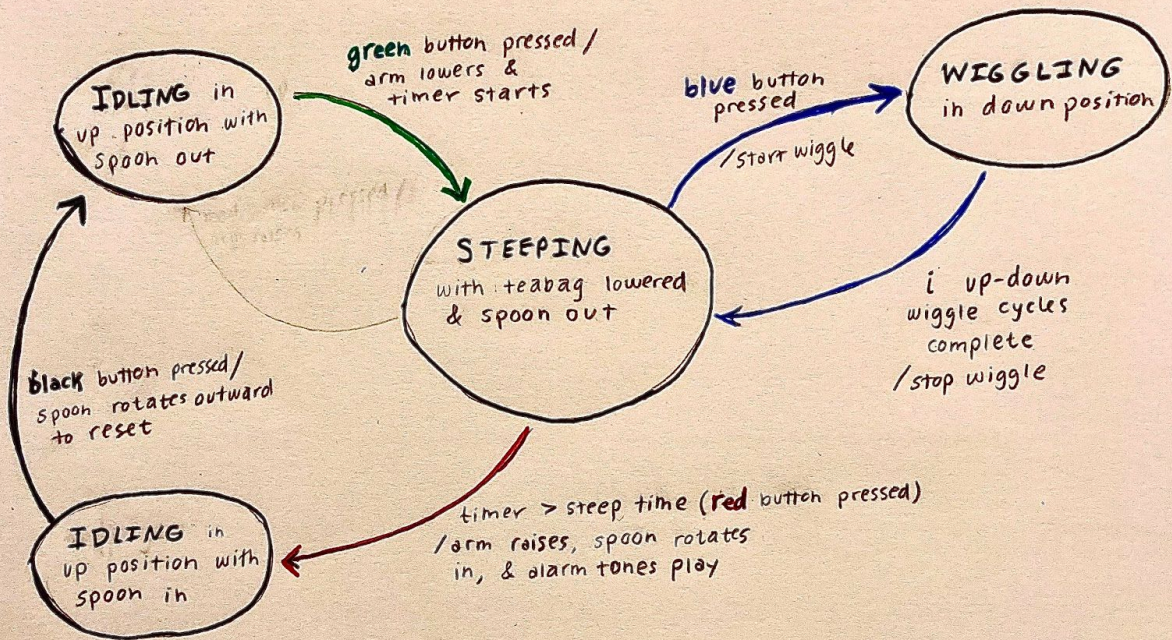 IDLING in
up position with
spoon out
green button pressed/
arm lowers &
timer starts
blue button
pressed
/start wiggle
WIGGLING
in down position
STEEPING
with teabag lowered
& spoon out
i up-down
wiggle cycles
complete
/stop wiggle
black button pressed/
spoon rotates outward
to reset
timer > steep time (red button pressed)
/arm raises, spoon rotates
in, & alarm tones play
IDLING in
up position with
spoon in